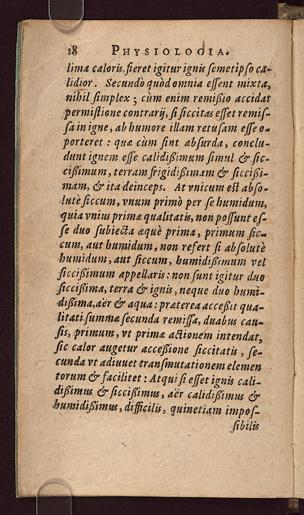 18 PHYSIOLOGIA.
lima caloris, fieret igitur ignis semetipso ca-
lidior. Secundò quòd omnia essent mixta,
nihil simplex; cùm enim remißio accidat
permistione contrarij, si siccitas esset remis-
sa in igne, ab humore illam retusam esse o-
porteret: quæ cùm sint absurda, conclu-
dunt ignem esse calidißimum simul & sic-
cißimum, terram frigidißimam & siccißi-
mam, & ita deinceps. At vnicum est abso-
lutè siccum, vnum primò per se humidum,
quia vnius prima qualitatis, non possunt es-
se duo subiecta æquè prima, primum sic-
cum, aut humidum, non refert si absolutè
humidum, aut siccum, humidißimum vel
siccißimum appellaris: non sunt igitur duo
siccißima, terra & ignis, neque duo humi-
dißima, aër & aqua: præterea acceßit qua-
litati summæ secunda remissa, duabus cau-
sis, primum, vt prima actionem intendat,
sic calor augetur acceßione siccitatis, se-
cunda vt adiuuet transmutationem elemen
torum & facilitet: Atqui si esset ignis cali-
dißimus & siccißimus, aër calidißimus &
humidißimus, difficilis, quinetiam impos-
sibilis